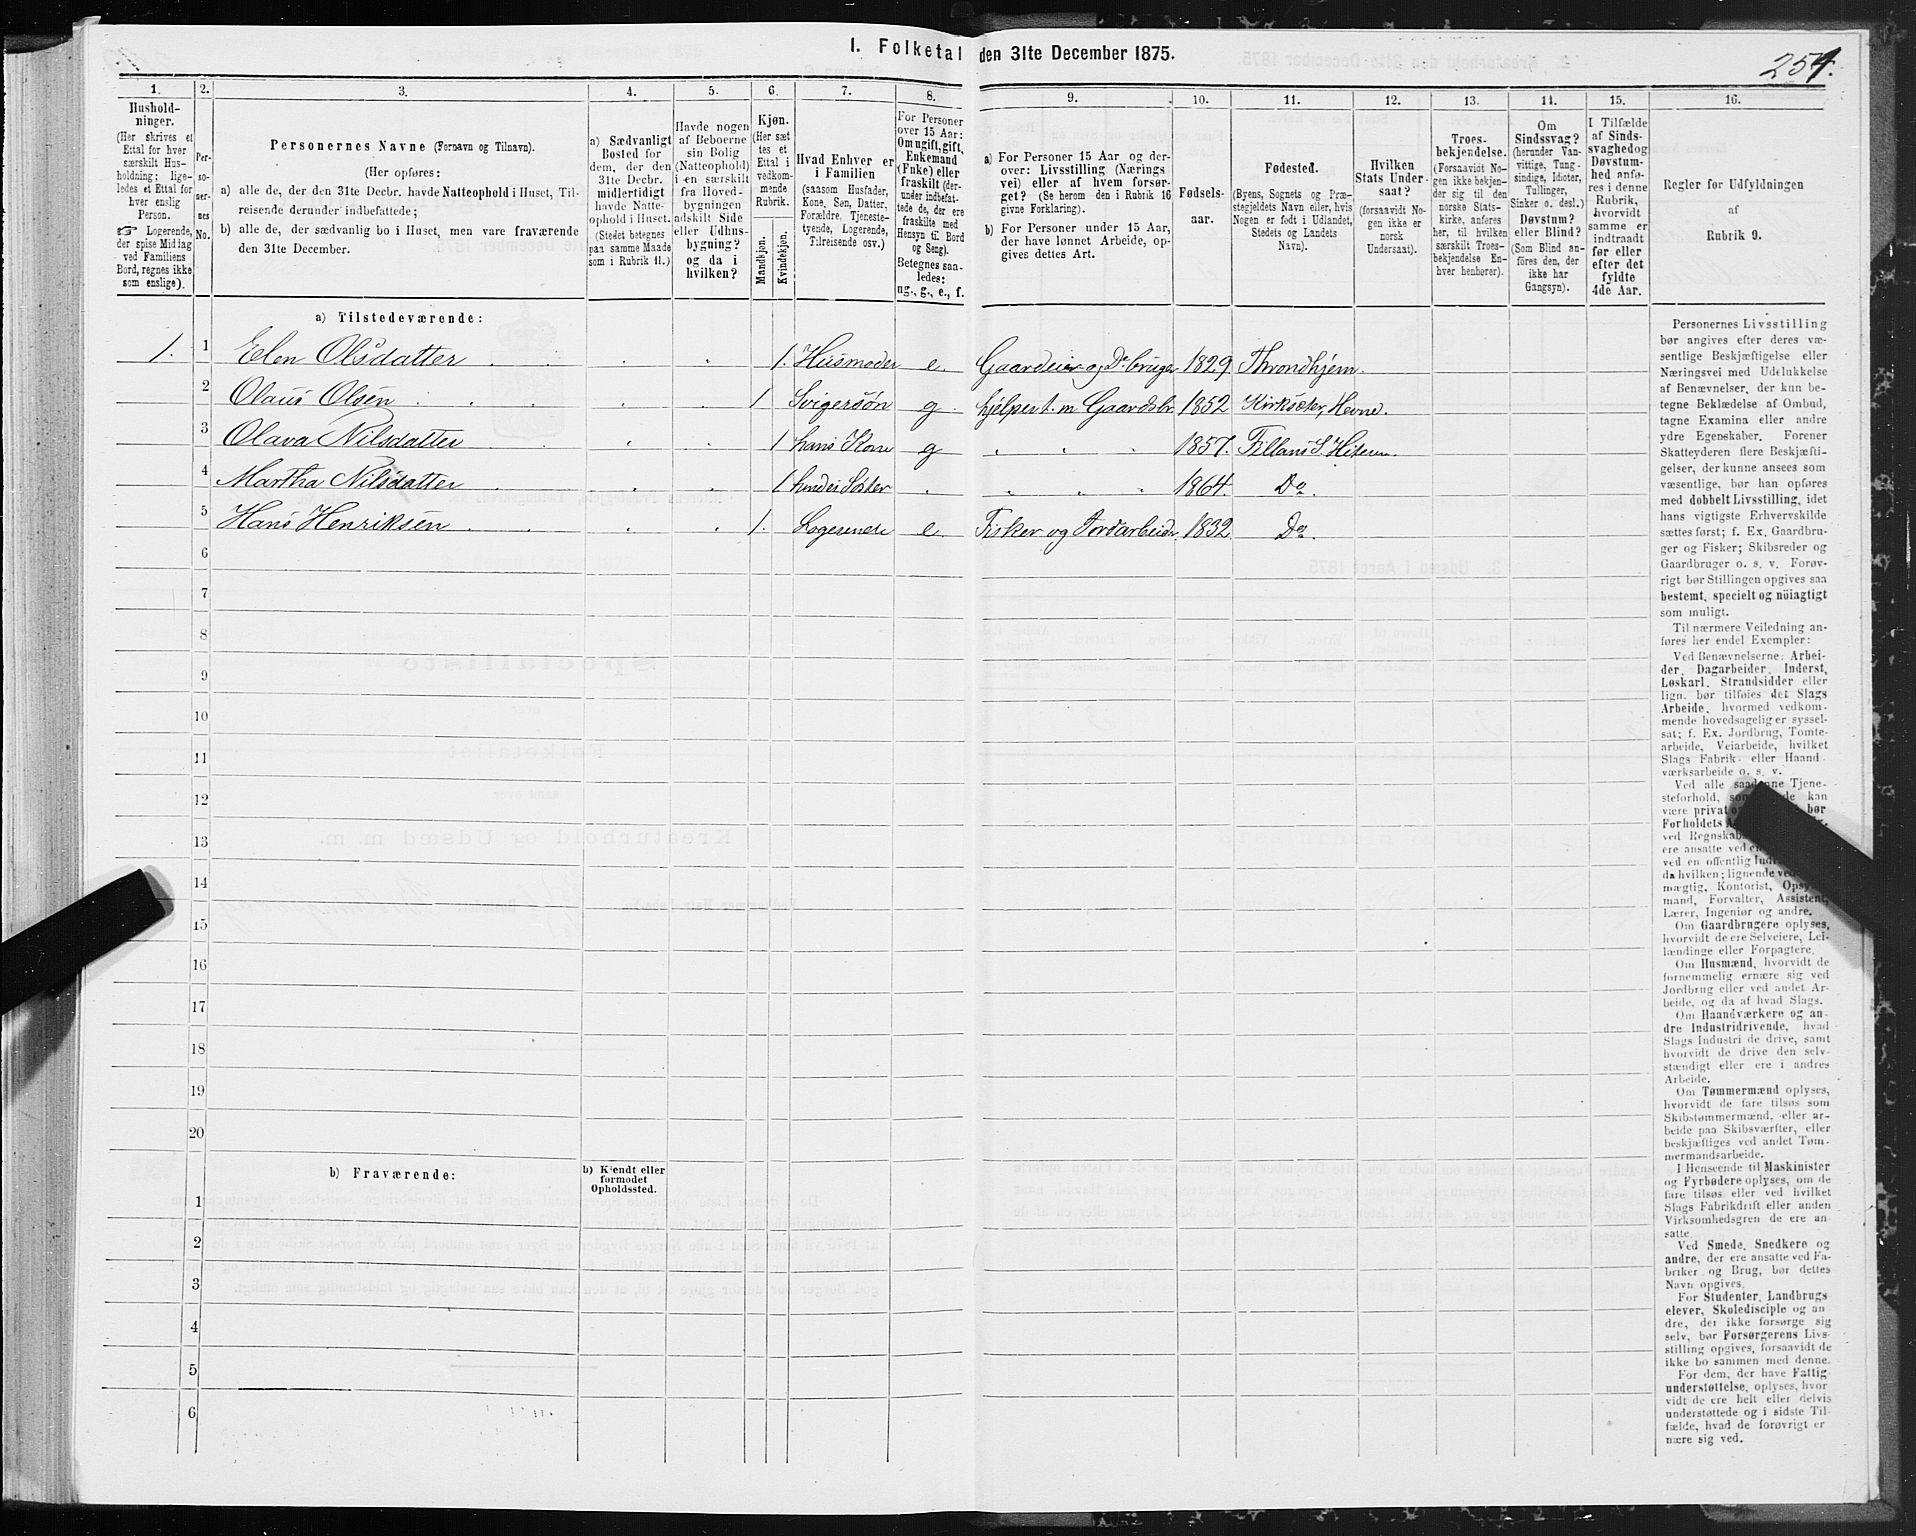 I. Folketal den 31te December 1875.
254.
1. 2. 3. 4. 5. 6. 7. 8. 9. 10. 11. 12. 13. 14. 15. 16.
Hushold-
ninger.
(Her skrives et
Ettal for hver
særskilt Hus-
holdning; lige-
ledes et Ettal for
hver enslig
Person.
☞ Logerende,
der spise Middag
ved Familiens
Bord, regnes ikke
som enslige).
Per-
so-
ner-
nes
No.
Personernes Navne (Fornavn og Tilnavn).
(Her opføres:
a) alle de, der den 31te Decbr. havde Natteophold i Huset, Til-
reisende derunder indbefattede;
b) alle de, der sædvanlig bo i Huset, men vare fraværende
den 31te December.
a) Sædvanligt
Bosted for
dem, der den
31te Decbr.
midlertidigt
havde Natte-
ophold i Huset.
(Stedet betegnes
paa samme Maade
som i Rubrik 11.)
Havde nogen
af Beboerne
sin Bolig
(Natteophold)
i en særskilt
fra Hoved-
bygningen
adskilt Side
eller Udhus-
bygning?
og da i
hvilken?
Kjøn.
(Her sæt-
tes et
Ettal i
vedkom-
mende
Rubrik.
Mandkjøn.
Kvindekjøn.
Hvad Enhver er
i Familien
(saasom Husfader,
Kone, Søn, Datter,
Forældre, Tjeneste-
tyende, Logerende,
Tilreisende osv.)
For Personer
over 15 Aar:
Om ugift, gift,
Enkemand
(Enke) eller
fraskilt (der-
under indbefat-
tede de, der ere
fraskilte med
Hensyn til Bord
og Seng).
Betegnes saa-
ledes:
ug., g., e., f.
a) For Personer 15 Aar og der-
over: Livsstilling (Nærings
vei) eller af hvem forsør-
get? (Se herom den i Rubrik 16
givne Forklaring).
b) For Personer under 15 Aar,
der have lønnet Arbeide, op-
gives dettes Art.
Fødsels-
aar.
Fødested.
(Byens, Sognets og Præ-
stegjeldets Navn eller, hvis
Nogen er født i Udlandet,
Stedets og Landets
Navn).
Hvilken
Stats Under-
saat?
(forsaavidt No-
gen ikke er
norsk
Undersaat).
Troes-
bekjendelse.
(Forsaavidt No-
gen ikke bekjen-
der sig til den
norske Stats-
kirke, anføres
her, til hvilken
særskilt Troes-
bekjendelse En-
hver henhører).
Om
Sindssvag?
(herunder Van-
vittige, Tung-
sindige, Idioter,
Tullinger,
Sinker o. desl.)
Døvstum?
eller Blind?
(Som Blind an-
føres den, der
ikke har
Gangsyn).
I Tilfælde
af Sinds-
svaghed og
Døvstum-
hed anfø-
res i denne
Rubrik,
hvorvidt
samme er
indtraadt
før eller
efter det
fyldte
4de Aar.
Regler for Udfyldningen
af
Rubrik 9.
a) Tilstedeværende:
1. 1 Elen Olsdatter 1. Husmoder e. Gaardeier og Do. bruger 1829. Throndhjem.
2 Olaus Olsen 1 Svigersøn g. hjelper t. m Gaardsbr. 1852 Kirksæter, Hevne.
3 Olava Nilsdatter 1 hans Kone g 1857. Fillans S. Hiteren.
4 Martha Nilsdatter 1 hendes Søster 1864. Do.
5 Hans Henriksen 1. Logerende e. Fisker og Jordarbeider. 1832. Do.
6
7
8
9
10
11
12
13
14
15
16
17
18
19
20
b) Fraværende:
b) Kjendt eller
formodet
Opholdssted.
1
2
3
4
5
6
Personernes Livsstilling
bør angives efter deres væ-
sentlige Beskjæftigelse eller
Næringsvei med Udelukkelse
af Benævnelser, der kun be-
tegne Beklædelse af Ombud,
tagne Examina eller andre
ydre Egenskaber. Forener
Skatteyderen flere Beskjæfti-
gelser, der kunne ansees som
væsentlige, bør han opføres
med dobbelt Livsstilling, idet
hans vigtigste Erhvervskilde
sættes først; f. Ex. Gaardbru-
ger og Fisker; Skibsreder og
Gaardbruger o. s. v. Forøv-
rigt bør Stillingen opgives saa
bestemt, specielt og nöiagtigt
som muligt.
Til nærmere Veiledning an-
føres her endel Exempler:
Ved Benævnelserne: Arbei-
der, Dagarbeider, Inderst,
Løskarl, Strandsidder eller
lign. bør tilføies det Slags
Arbeide, hvormed vedkom-
mende hovedsagelig er syssel-
sat; f. Ex. Jordbrug, Tomte-
arbeide, Veiarbeide, hvilket
Slags Fabrik- eller Haand-
værksarbeide o. s. v.
Ved alle saadanne Tjene-
steforhold, kan
være privat bør
Forholdets
ved Regnskab
ere ansatte ved
ved en offentlig
da hvilken; lignende
mægtig, Kontorist,
mand, Forvalter, Assistent,
Lærer, Ingeniør og andre.
Om Gaardbrugere oplyses,
hvorvidt de ere Selveiere, Lei-
lændinge eller Forpagtere.
Om Husmænd, hvorvidt de
fornemmelig ernære sig ved
Jordbrug eller ved andet Ar-
beide, og da af hvad Slags.
Om Haandværkere og an-
dre Industridrivende, hvad
Slags Industri de drive, samt
hvorvidt de drive den selv-
stændigt eller ere i andres
Arbeide.
Om Tømmermænd oplyses,
hvorvidt de fare tilsøs som
Skibstømmermænd, eller ar-
beide paa Skibsværfter, eller
beskjæftiges ved andet Tøm-
mermandsarbeide.
I Henseende til Maskinister
og Fyrbødere oplyses, om de
fare tilsøs eller ved hvilket
Slags Fabrikdrift eller anden
Virksomhedsgren de ere an-
satte.
Ved Smede, Snedkere og
andre, der ere ansatte ved Fa-
briker og Brug, bør dettes
Navn opgives.
For Studenter, Landbrugs-
elever, Skoledisciple og an-
dre, der ikke forsørge sig
selv, bør Forsørgerens Livs-
stilling opgives, forsaavidt de
ikke bo sammen med denne.
For dem, der have Fattig-
understøttelse, oplyses, hvor
vidt de ere helt eller delvis
understøttede og i sidste Til-
fælde, hvad de forøvrigt er
nære sig ved.